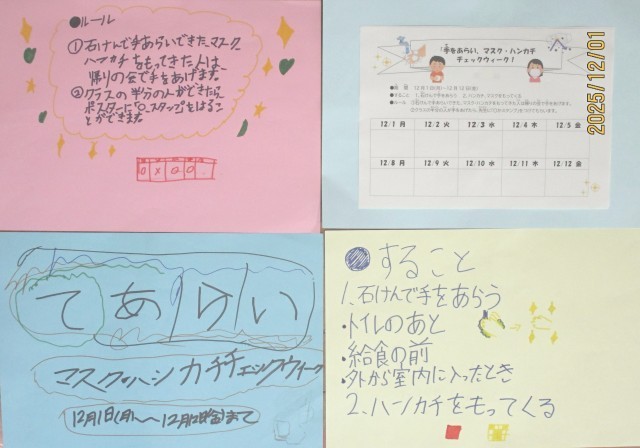 ●ルール
①石けんで手あらいできた、マスク、
ハンカチをもってきた人は、
帰りの会で手をあげます。
②クラスの半分の人ができたら
ポスターに「○」スタンプをはるこ
とができます。
○ × ○ ○
「手をあらい、マスク・ハンカチ
チェックウィーク!
12/1 月 12/2 火 12/3 水 12/4 木 12/5 金
12/8 月 12/9 火 12/10 水 12/11 木 12/12 金
2025/12/01
てあらい
マスク・ハンカチチェックウィーク
12月1日(月)〜12月12日(金)まで
●すること
1.石けんで手をあらう
・トイレのあと
・給食の前
・外から室内に入ったとき
2.ハンカチをもってくる